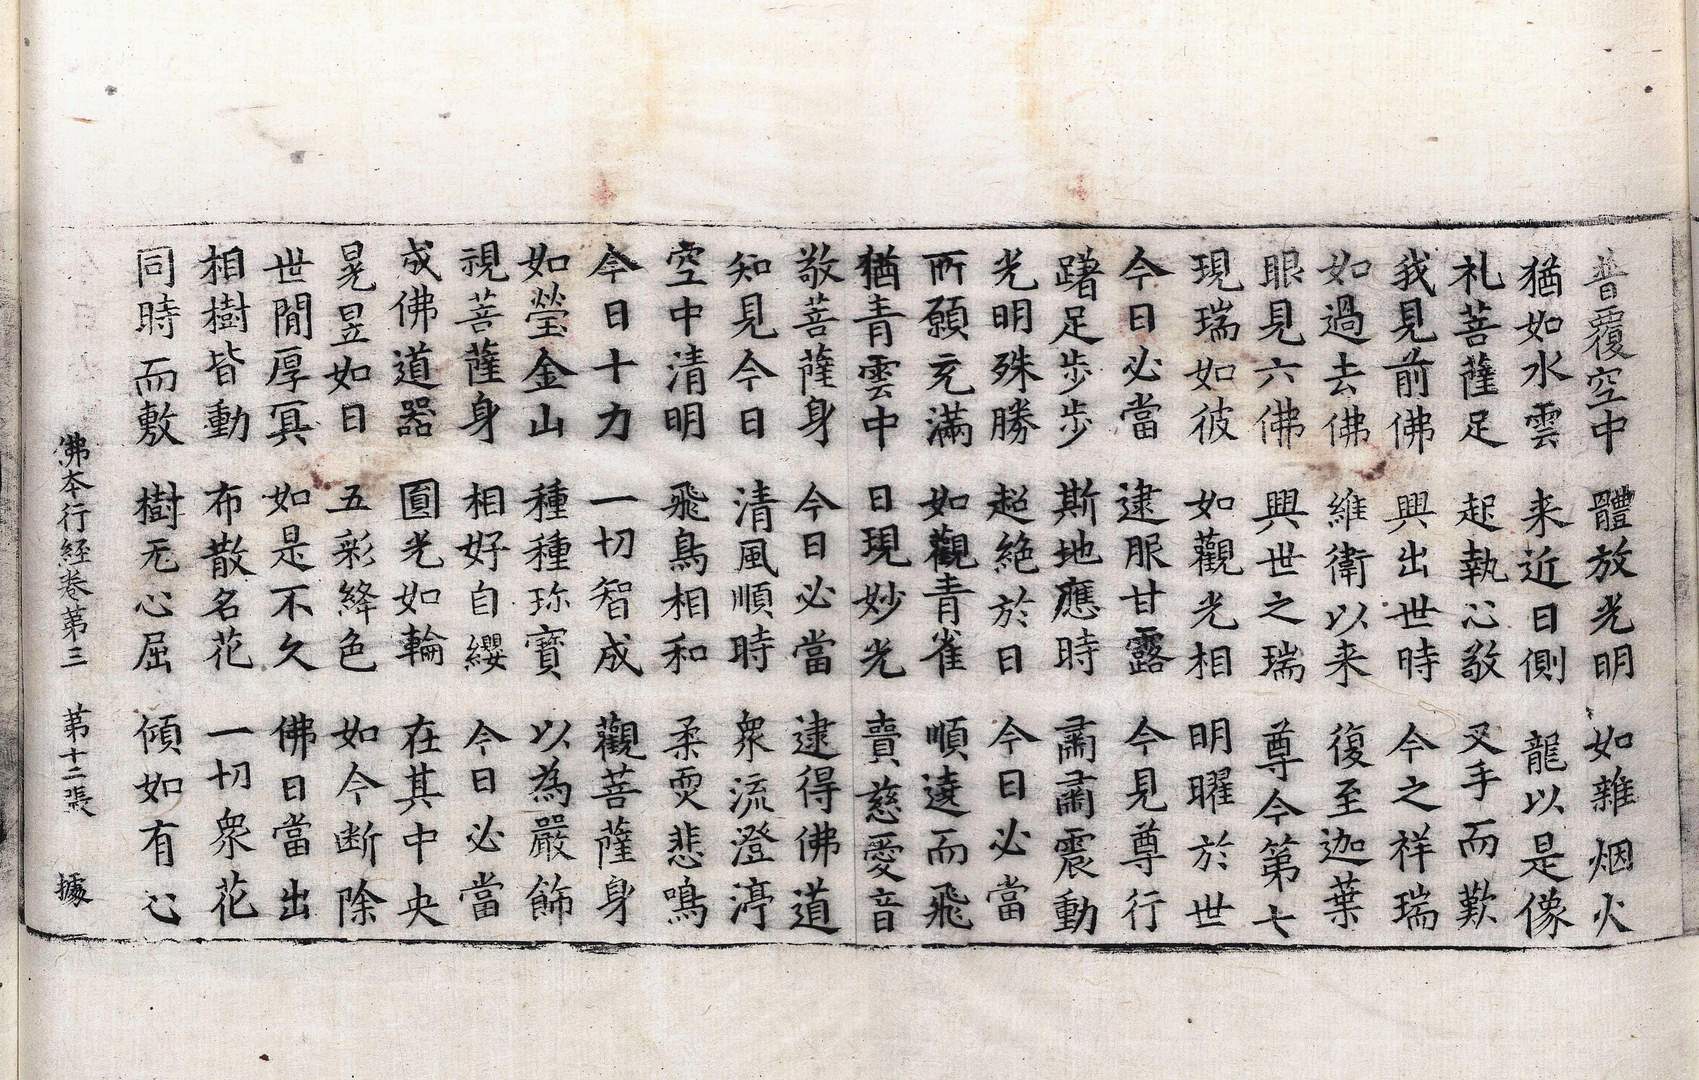 普覆空中　體放光明　如雜烟火
猶如水雲　来近日側　龍以是像
礼菩薩足　起執心敬　叉手而歎
我見前佛　興出世時　今之祥瑞
如過去佛　維衛以来　復至迦葉
眼見六佛　興世之瑞　尊今第七
現瑞如彼　如觀光相　明曜於世
今日必當　逮服甘露　今見尊行
躇足步步　斯地應時　肅肅震動
光明殊勝　超絶於日　今日必當
所願充滿　如觀青雀　順遶而飛
猶青雲中　日現妙光　賣慈愛音
敬菩薩身　今日必當　逮得佛道
知見今日　清風順時　衆流澄渟
空中清明　飛鳥相和　柔耎悲鳴
今日十力　一切智成　觀菩薩身
如瑩金山　種種珎寶　以為嚴飾
視菩薩身　相好自纓　今日必當
成佛道器　圓光如輪　在其中央
晃昱如日　五彩絳色　如今断除
世閒厚冥　如是不久　佛日當出
相樹皆動　布散名花　一切衆花
同時而敷　樹无心屈　傾如有心
佛本行経卷第三　第十二張　據